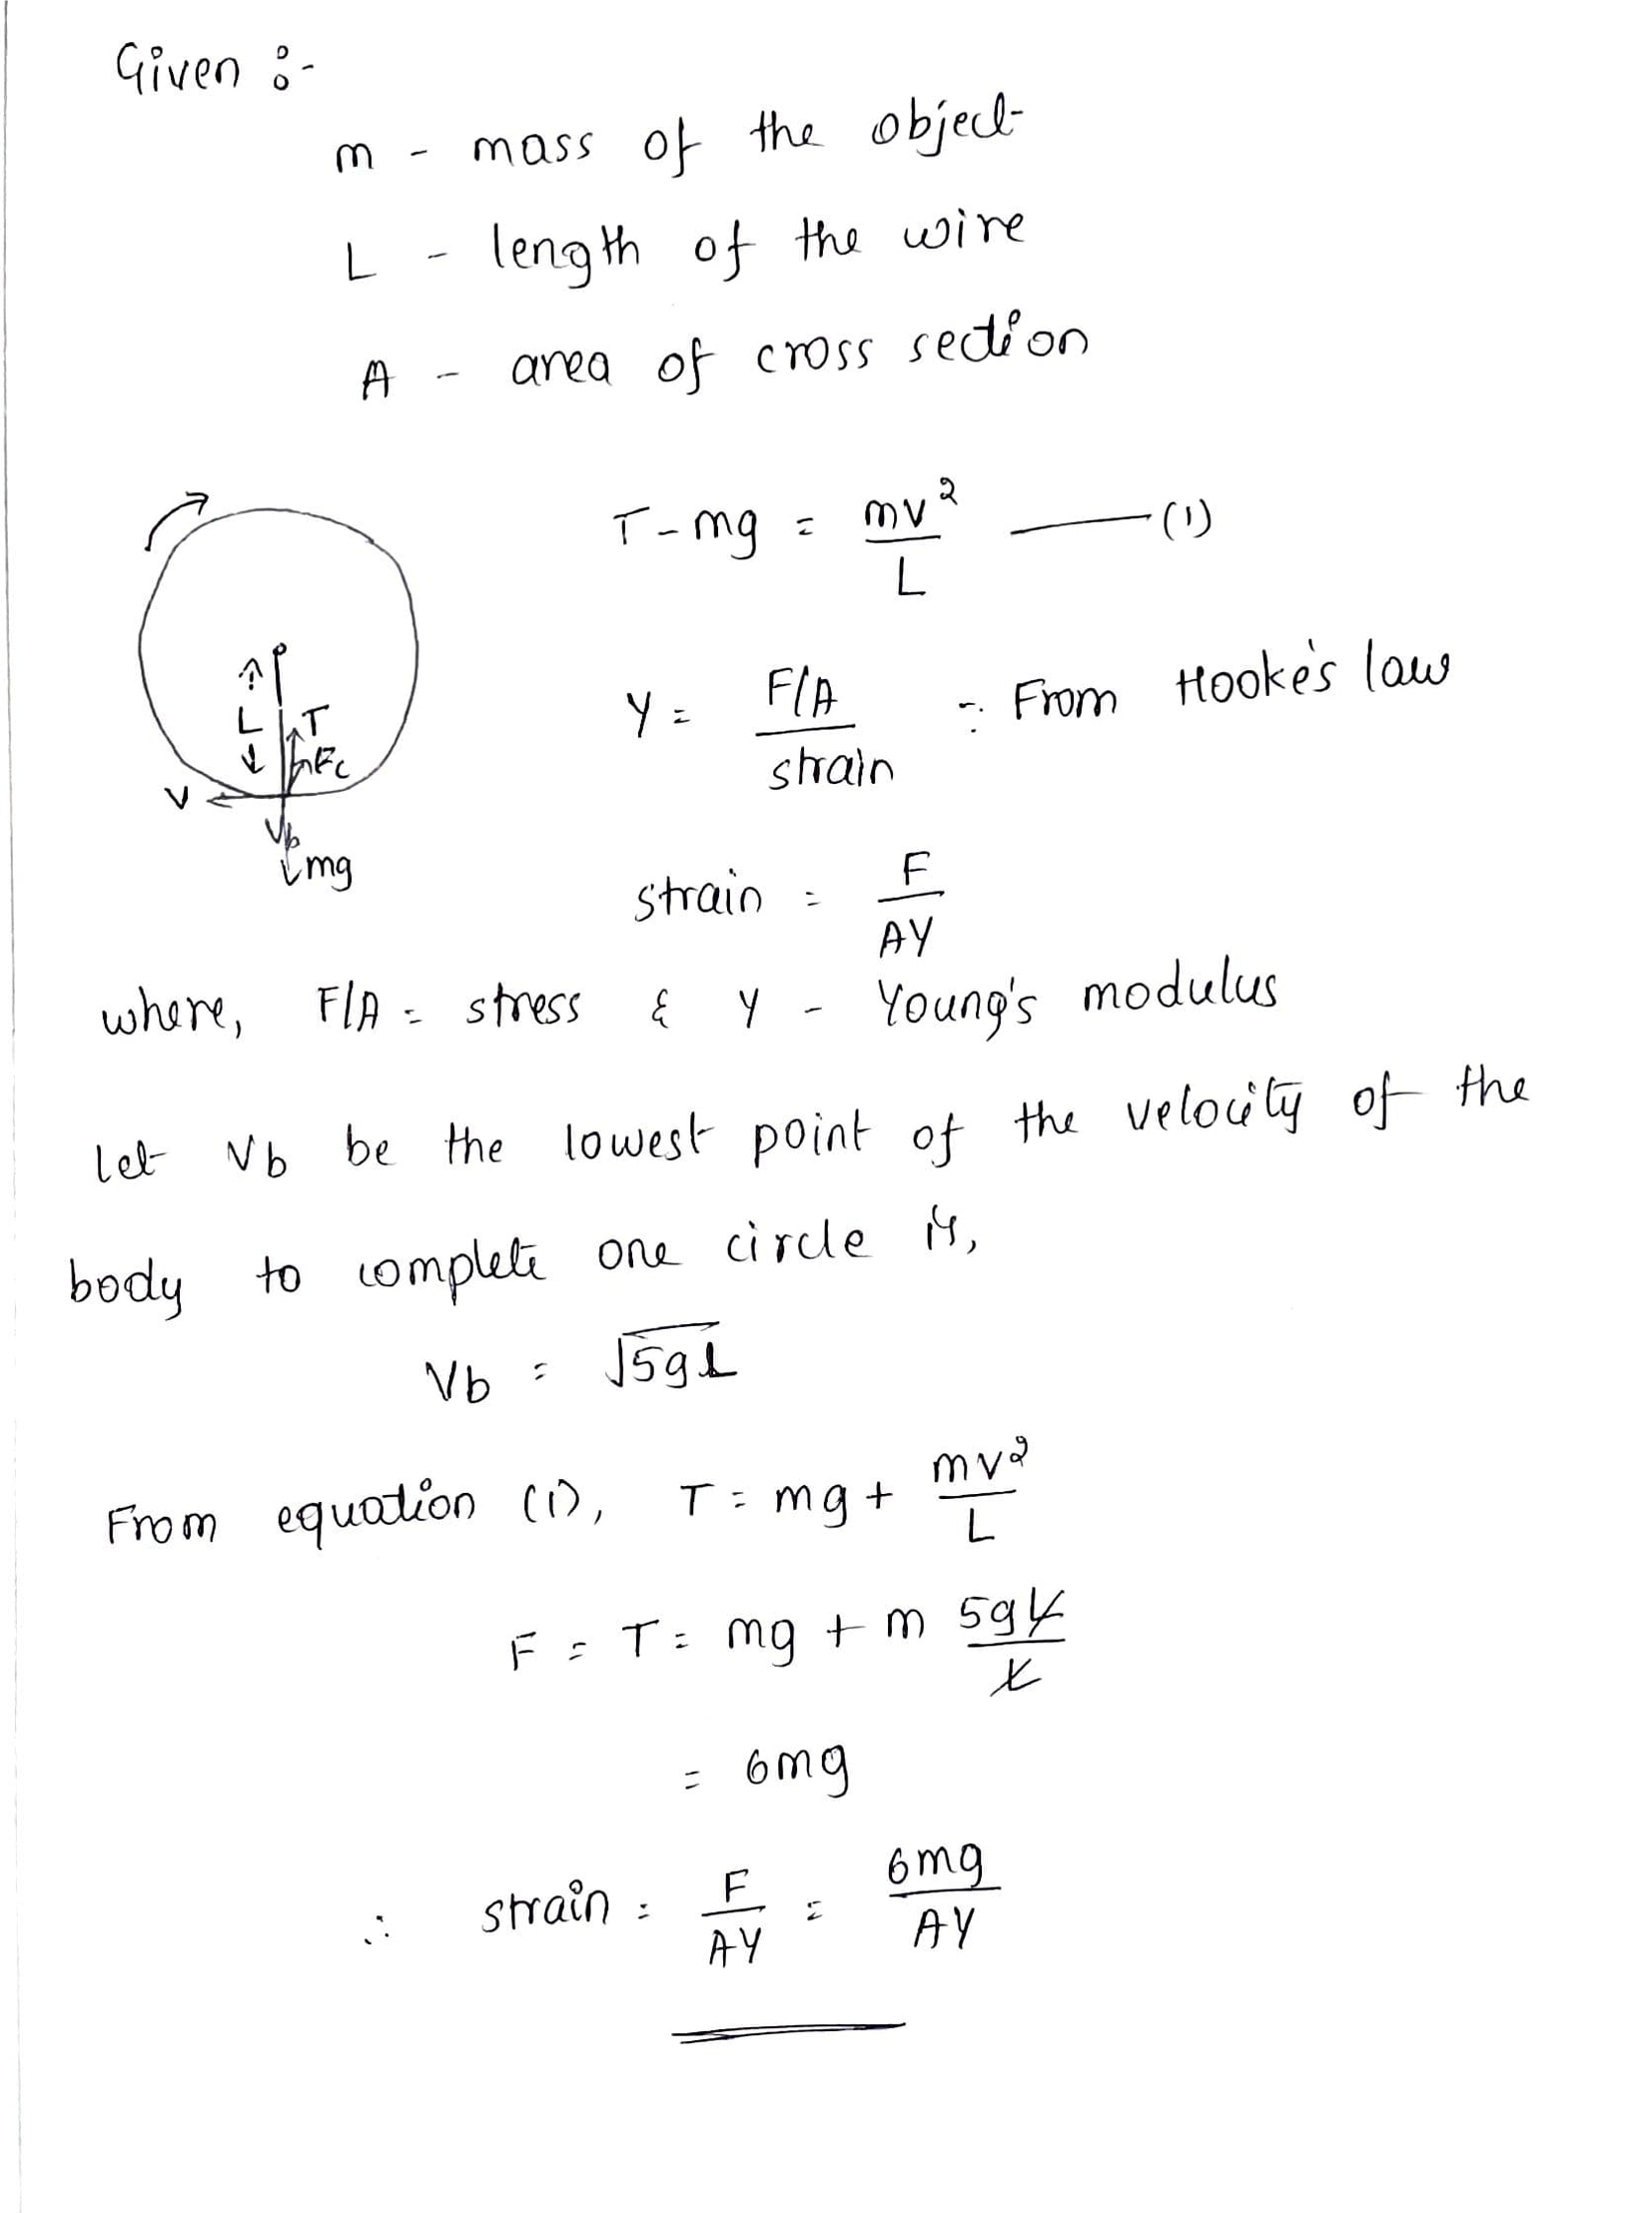 Given :-
m - mass of the object
L - length of the wire
A - area of cross section
T - mg = mv²/L —— (1)
Y = F/A / strain ∵ From Hooke's law
L T
Fc
V
Vb
mg
strain = F/AY
where, F/A = stress & Y - Young's modulus
let Vb be the lowest point of the velocity of the
body to complete one circle is,
Vb = √5gL
From equation (1), T = mg + mv²/L
F = T = mg + m 5gL/L
= 6mg
∴ strain = F/AY = 6mg/AY